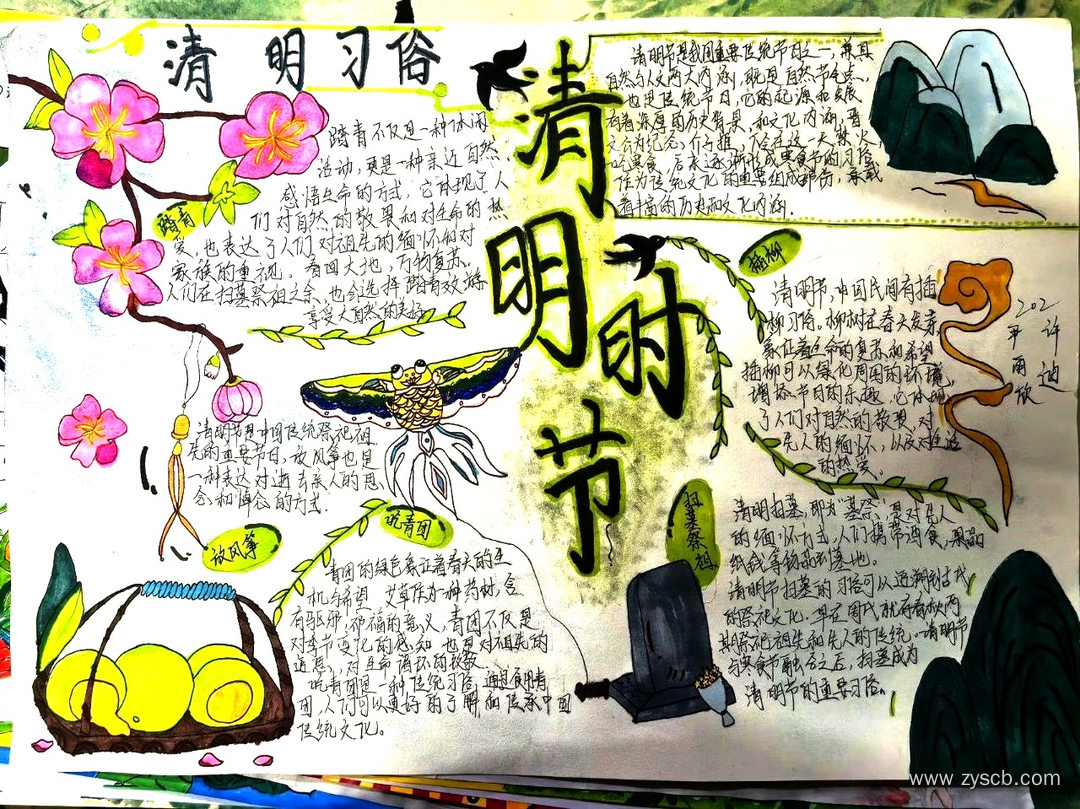 清明习俗
踏青不仅是一种休闲
活动,更是一种亲近自然、
感悟生命的方式,它体现了人
们对自然的敬畏和对生命的热
爱,也表达了人们对祖先的缅怀和对
家族的重视。春回大地,万物复苏。
人们在扫墓祭祖之余,也会选择踏青郊游
享受大自然的美好
踏青
清明时节
清明节是我国重要传统节日之一,兼具
自然与人文两大内涵,既是自然节气点,
也是传统节日,它的起源和发展
有着深厚的历史背景,和文化内涵,晋
文公为纪念介子推,
后来逐渐形成寒食节的习俗
作为传统文化的重要组成部份,承载
着丰富的历史和文化内涵.
插柳
清明节,中国民间有插
柳习俗。柳树在春天发芽
象征着生命的复苏和希望
插柳可以绿化周围的环境,
增添节日的乐趣,它体现
了人们对自然的敬畏,对
先人的缅怀,以及对生活
的热爱。
202
许迪
雨欣
清明节是中国传统祭祀祖
先的重要节日,放风筝也是
一种表达对逝去亲人的思
念和悼念的方式.
放风筝
吃青团
青团的绿色象征着春天的生
机与希望,艾草作为一种药材,含
有驱邪,祈福的意义,青团不仅是
对季节变化的感知,也是对祖先的
追思,对生命循环的敬畏.
吃青团是一种传统习俗,通过食用青
团,人们可以更好的了解和传承中国
传统文化。
扫墓祭祖
清明扫墓,即为“墓祭”,是对先人
的缅怀方式,人们携带酒食,果品
纸钱等物品到墓地。
清明节扫墓的习俗可以追溯到古代
的祭祀文化.早在周代就有春秋两
其祭祀祖先和先人的传统.清明节
与寒食节融合之后,扫墓成为
清明节的重要习俗.
www.zyscb.com